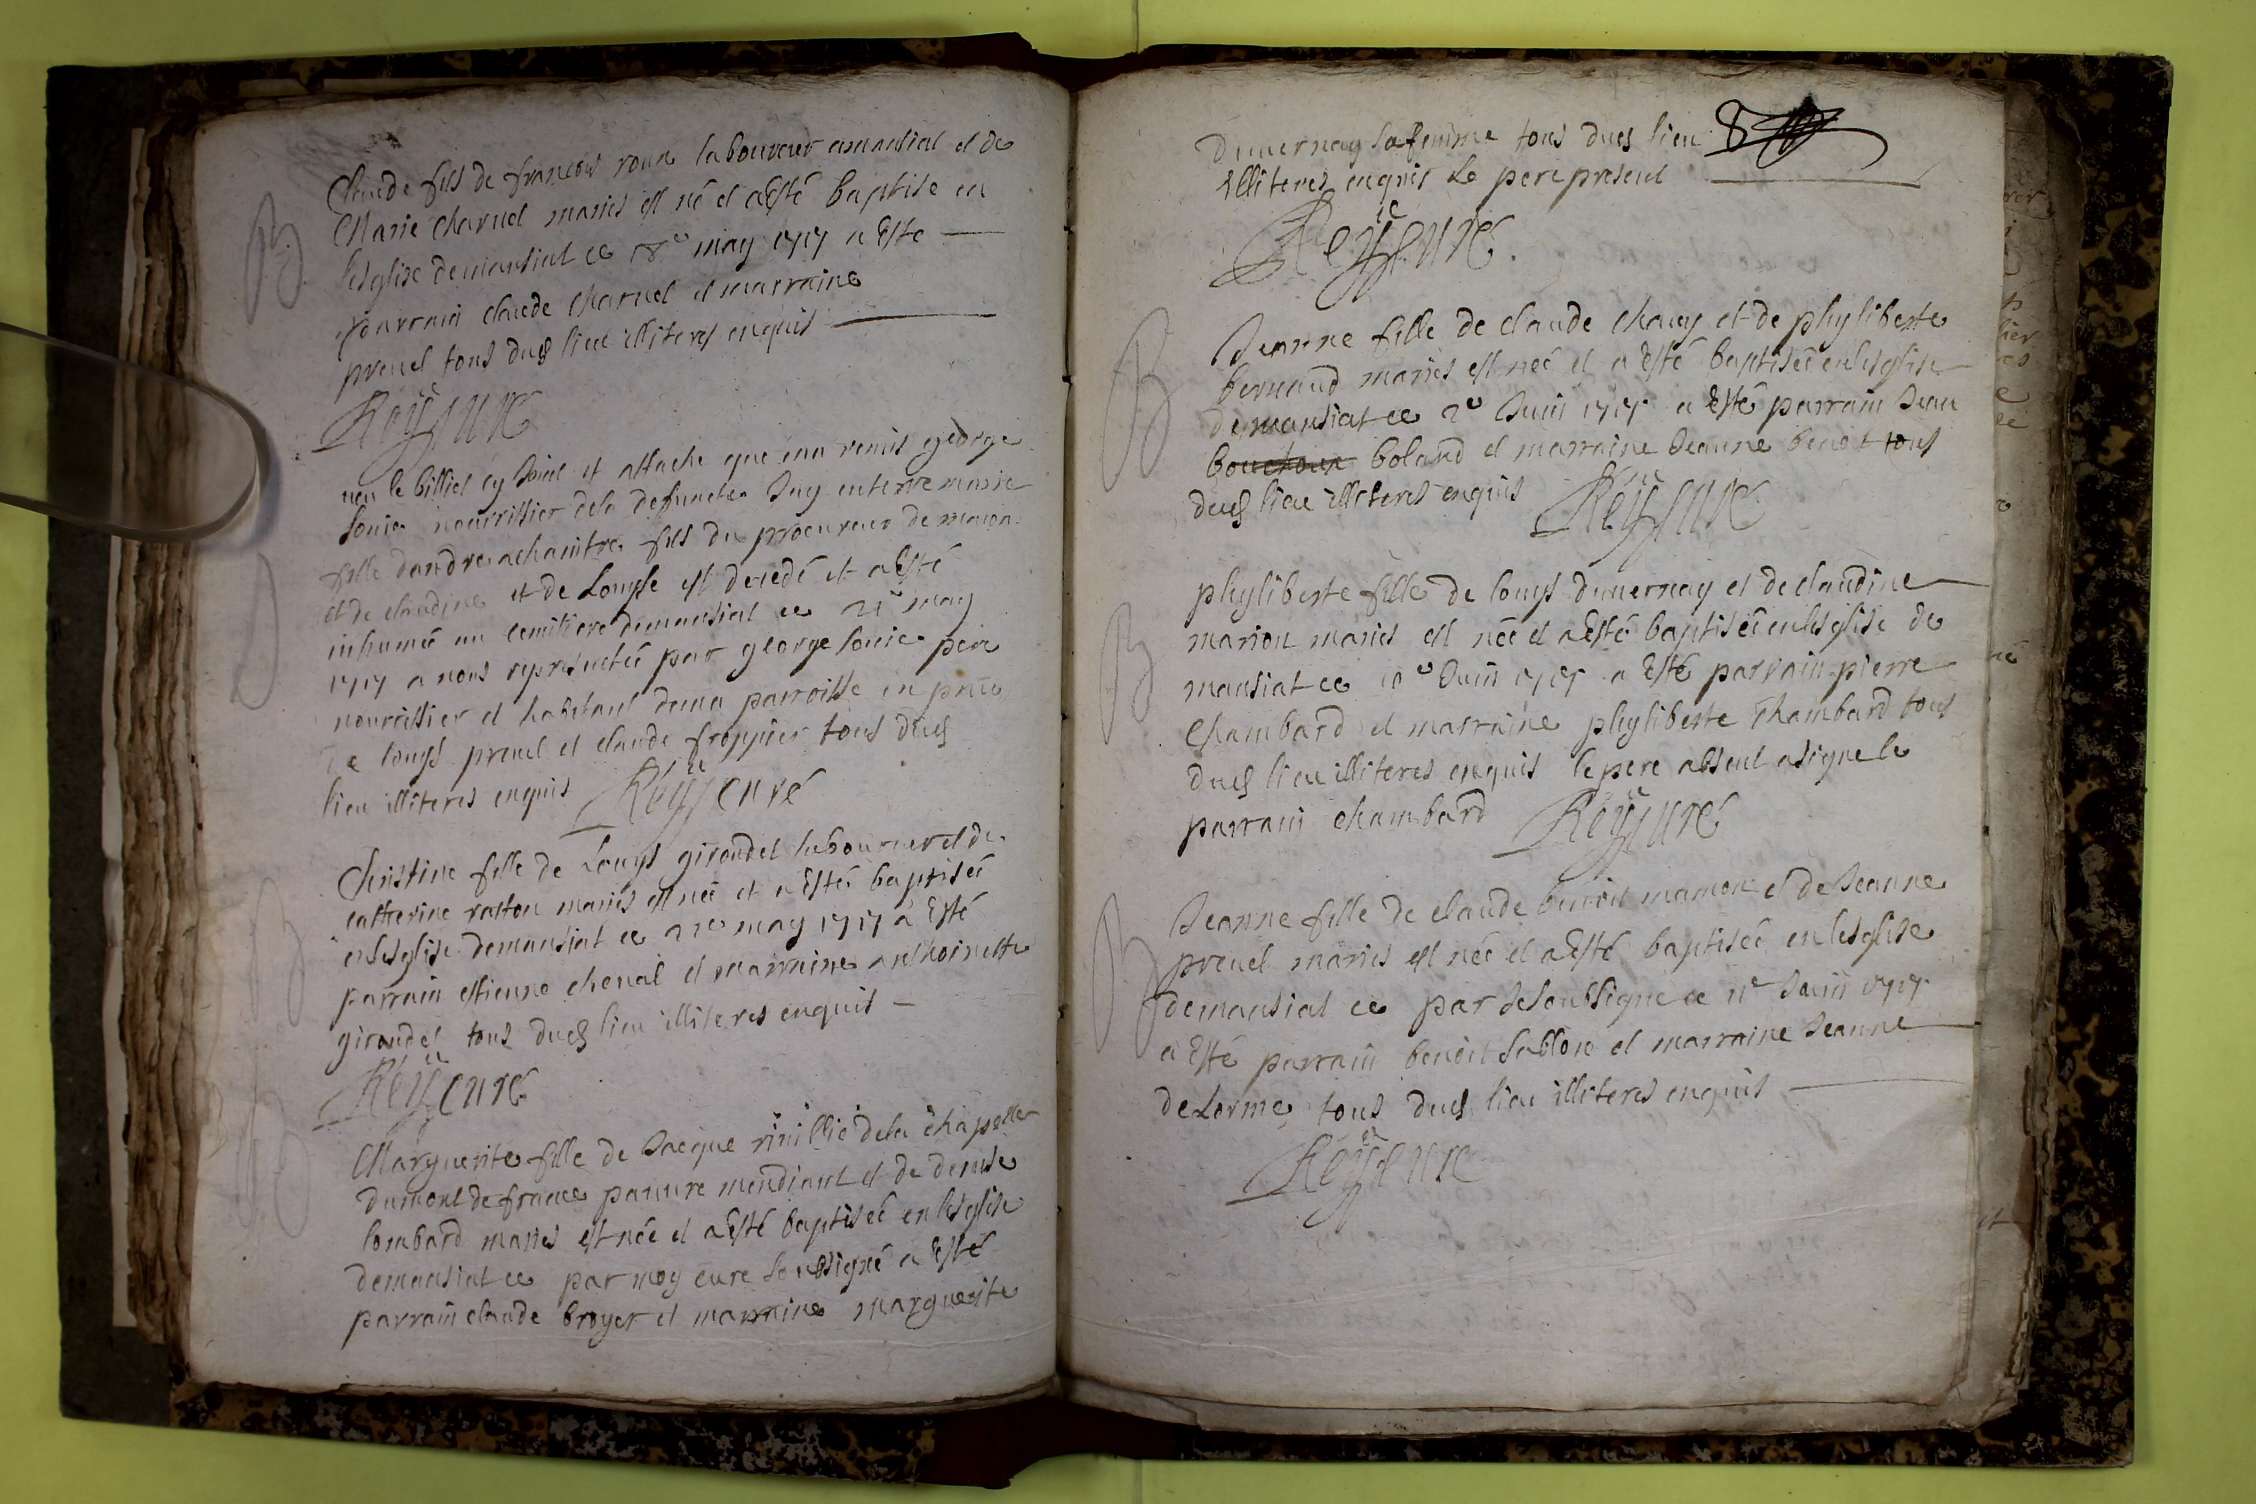 B
Claude fils de francois roux laboureur amansiat et de
Marie Charvel mariés est né et a esté baptise en
lesglise demansiat ce 18e may 1717 a Esté
parrain claude Charvel et marraine
prevel tous dud lieu illiteres enquis
Rey curé
D
veu le billiet cy Joint et attaché que ma remis george
Jouie nourrissier dela defuncte Jay enterré marie
fille dandre achaintre fils du procureur de macon
et de claudine et de Louyse est decedé et a Esté
inhumée au cemitiere demansiat ce 21e may
1717 a nous represntée par george Jouie pere
nourrissier et habitant dema parroisse en pnce
De louys prevel et claude froppier tous dud
lieu illiteres enquis Rey curé
B
Christine fille de Louys girondet laboureur et de
catherine raston mariés est née et a Esté baptisée
enlesglise demansiat ce 21e may 1717 a Esté
parrain estienne chenal et marraine anthoinette
girondet tous dud lieu illiteres enquis
Rey curé
B
Marguerite fille de Jacque dela chapelle
dumont de france pauvre mendiant et de denise
lombard mariés est née et a Esté baptisée en lesglise
demansiat ce par moy curé soubsigné a Esté
parrain claude broyer et marraine Marguerite
Duvernay sa femme tous dud lieu
illiteres enquis Le pere present
Rey curé
B
Jeanne fille de claude chavy et de phyliberte
bernard mariés est née et a Esté baptisée en lesglise
demansiat ce 2e Juin 1717 a Esté parrain Jean
bouchoux boland et marraine Jeanne benoit tous
dud lieu illiteres enquis Rey curé
B
phyliberte fille de louys duvernay et de claudine
marion mariés est née et a Esté baptisée en lesglise de
mansiat ce 10e Juin 1717 a Esté parrain pierre
Chambard et marraine phyliberte Chambard tous
dud lieu illiteres enquis le pere absent a signe le
parrain chambard Rey curé
B
Jeanne fille de claude benoit mamon et de Jeanne
prevel mariés est née et a Esté baptisée en lesglise
demansiat ce par Je soubsigne ce 11e Juin 1717
a Esté parrain benoit Jablon et marraine Jeanne
deLorme tous dud lieu illiteres enquis
Rey curé